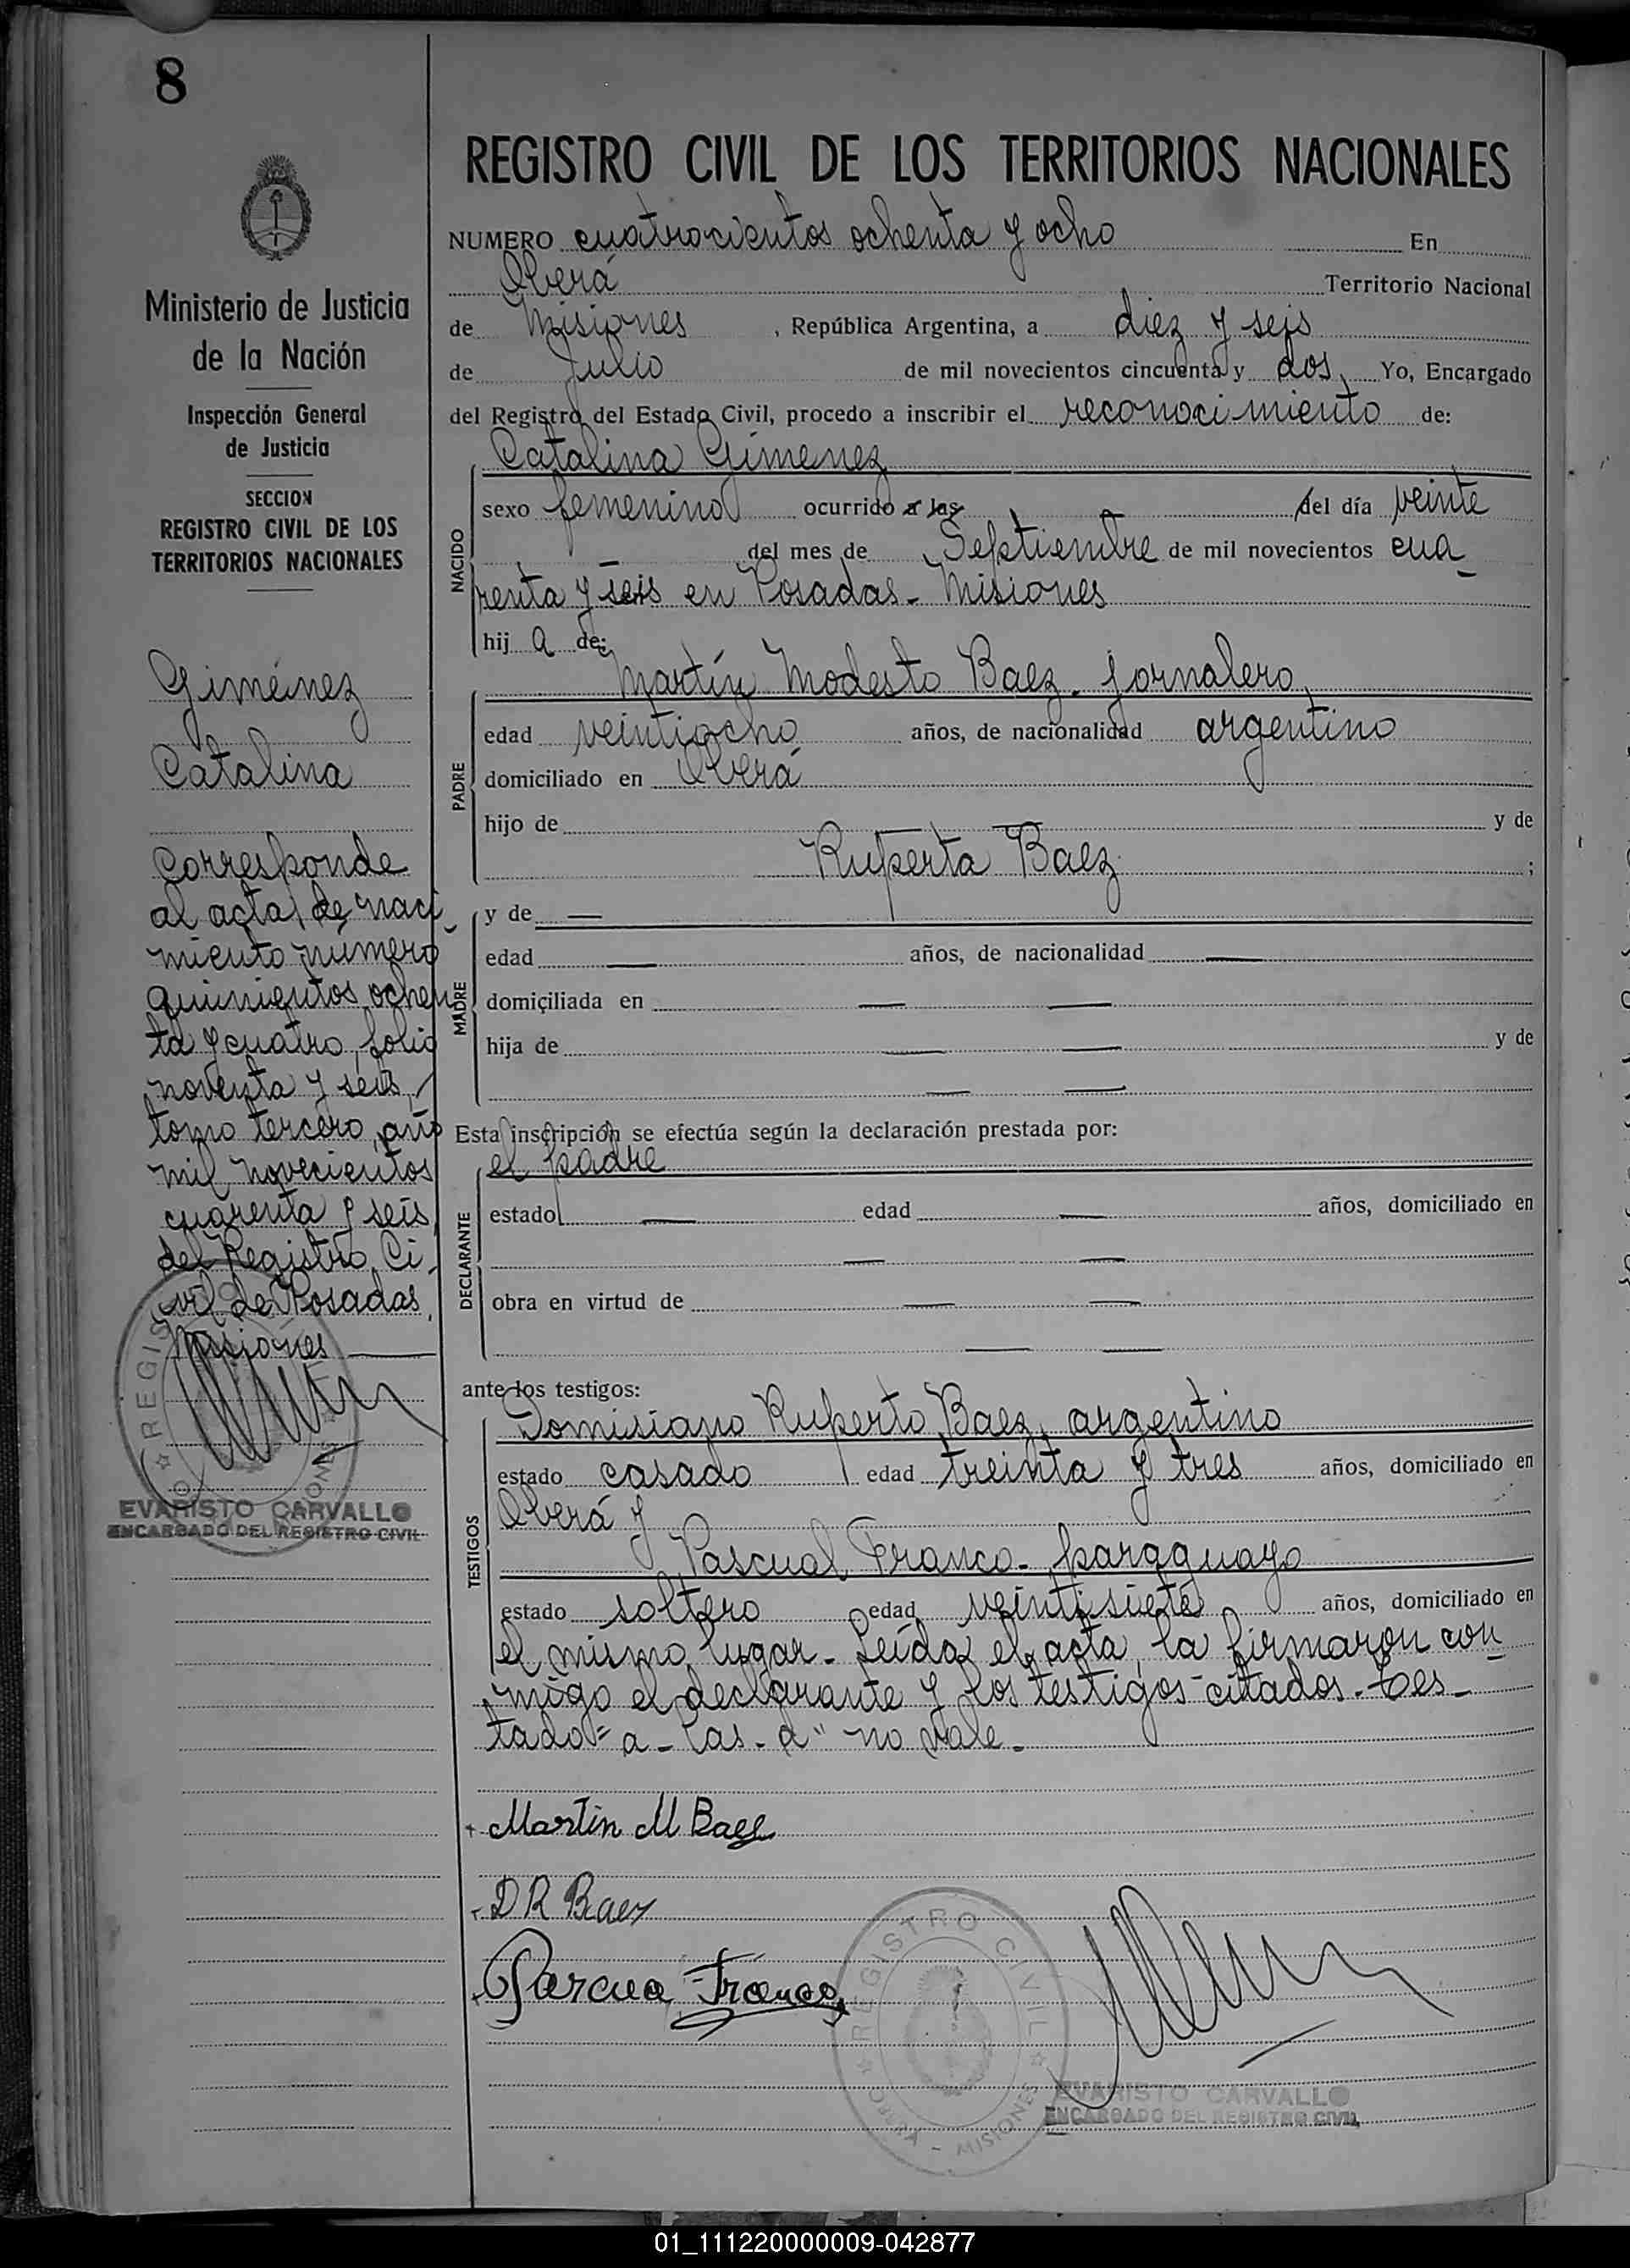 8
Ministerio de Justicia
de la Nación
Inspección General
de Justicia
SECCION
REGISTRO CIVIL DE LOS
TERRITORIOS NACIONALES
Giménez
Catalina
Corresponde
al acta de naci_
miento número
quinientos ochen
ta y cuatro, folio
noventa y seis,
tomo tercero, año
mil novecientos
cuarenta y seis
del Registro Ci_
vil de Posadas,
Misiones
EVARISTO CARVALLO
ENCARGADO DEL REGISTRO CIVIL
REGISTRO CIVIL DE LOS TERRITORIOS NACIONALES
NUMERO cuatrocientos ochenta y ocho En
Oberá Territorio Nacional
de Misiones, República Argentina, a diez y seis
de Julio de mil novecientos cincuenta y dos, Yo, Encargado
del Registro del Estado Civil, procedo a inscribir el reconocimiento de:
Catalina Gimenez
NACIDO
sexo femenino ocurrido a las del día veinte
del mes de Septiembre de mil novecientos cua_
renta y seis en Posadas - Misiones
hij a de:
Martín Modesto Baez - jornalero,
PADRE
edad veintiocho años, de nacionalidad argentino
domiciliado en Oberá
hijo de y de
Ruperta Baez ;
MADRE
y de —
edad — años, de nacionalidad —
domiciliada en — —
hija de — — y de
— —
Esta inscripción se efectúa según la declaración prestada por:
el padre
DECLARANTE
estado — edad — años, domiciliado en
— —
obra en virtud de — —
— —
ante los testigos:
TESTIGOS
Domisiano Ruperto Baez, argentino
estado casado edad treinta y tres años, domiciliado en
Oberá y
Pascual Franco - paraguayo
estado soltero edad veintisiete años, domiciliado en
el mismo lugar - Leída el acta, la firmaron con_
migo el declarante y los testigos citados - Tes_
tado = a - las - d" no vale -
Martin M Baez
D R Baez
Pascua Franco
REGISTRO CIVIL
OBERA - MISIONES
EVARISTO CARVALLO
ENCARGADO DEL REGISTRO CIVIL
01_111220000009-042877